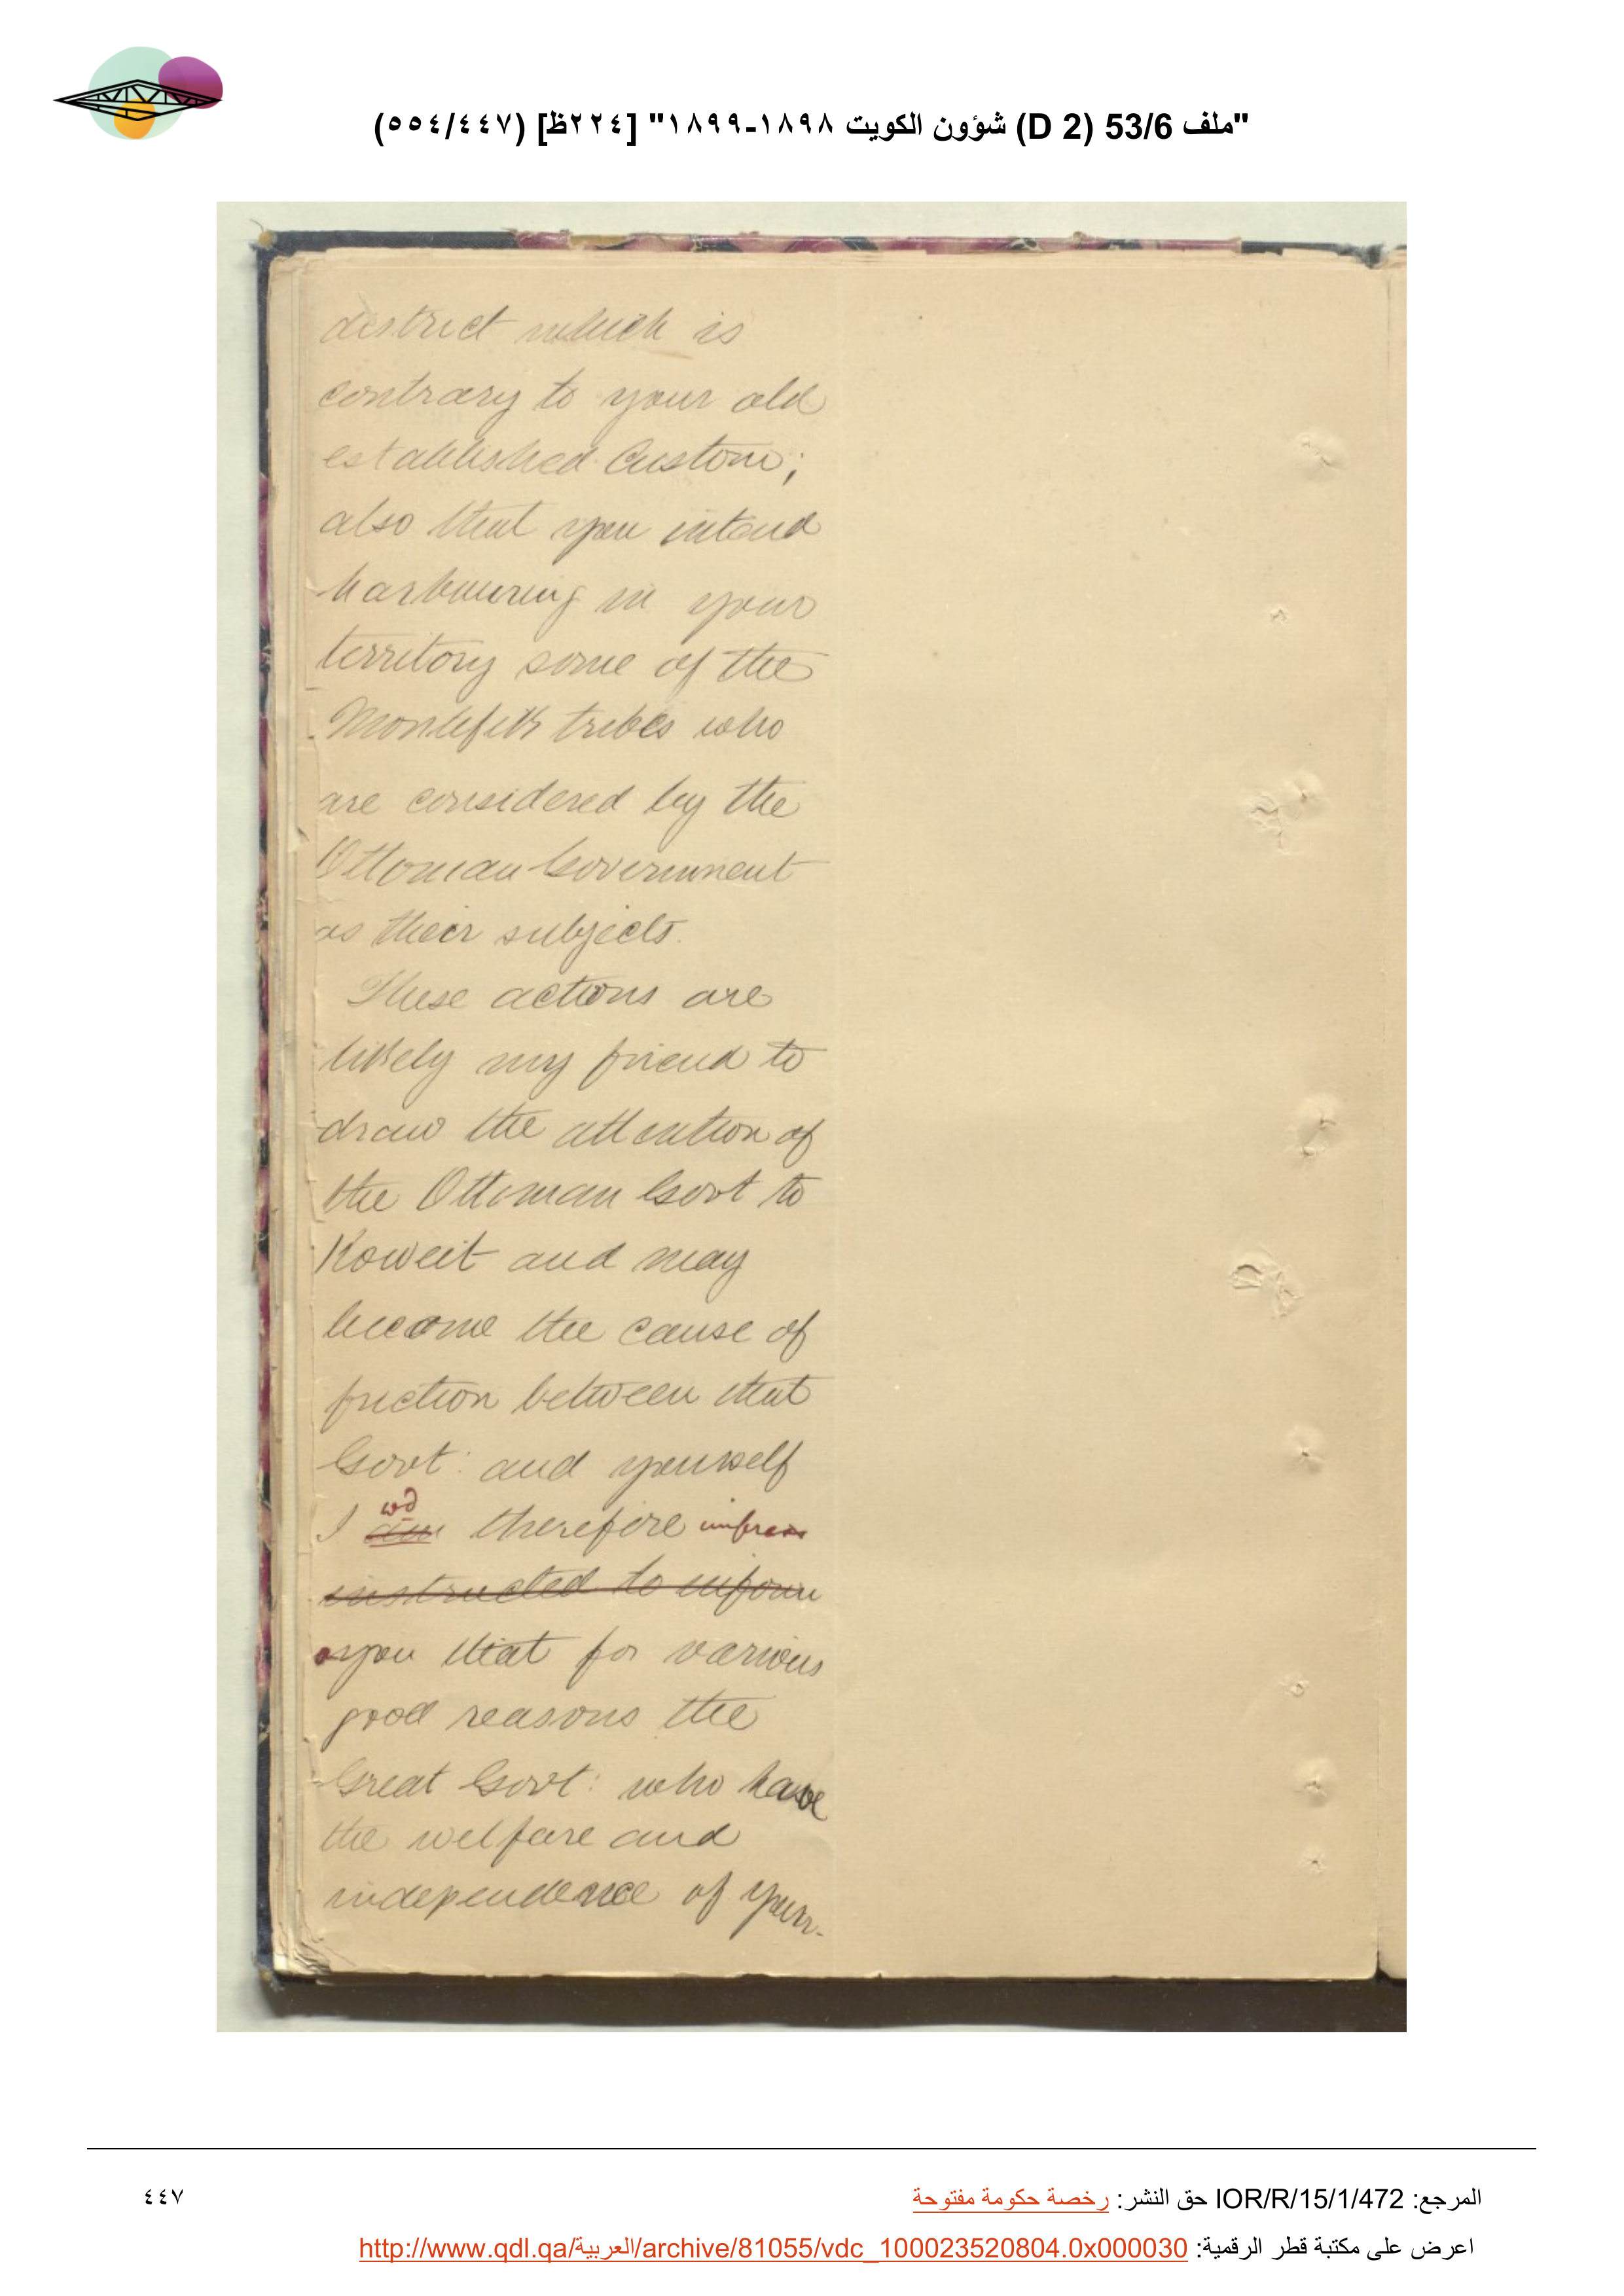 "ملف 53/6 (D 2) شؤون الكويت ١٨٩٨-١٨٩٩" [٢٢٤ظ] (٥٥٤/٤٤٧)
district which is
contrary to your old
established Custom;
also that you intend
harbouring in your
territory some of the
Montefik tribes who
are considered by the
Ottoman Government
as their subjects.
These actions are
likely my friend to
draw the attention of
the Ottoman Govt to
Koweit and may
become the cause of
friction between that
Govt: and yourself
wd
I am therefore impress
instructed to inform
you that for various
good reasons the
Great Govt: who have
the welfare and
independence of your
المرجع: IOR/R/15/1/472 حق النشر: رخصة حكومة مفتوحة
٤٤٧
اعرض على مكتبة قطر الرقمية: http://www.qdl.qa/العربية/archive/81055/vdc_100023520804.0x000030